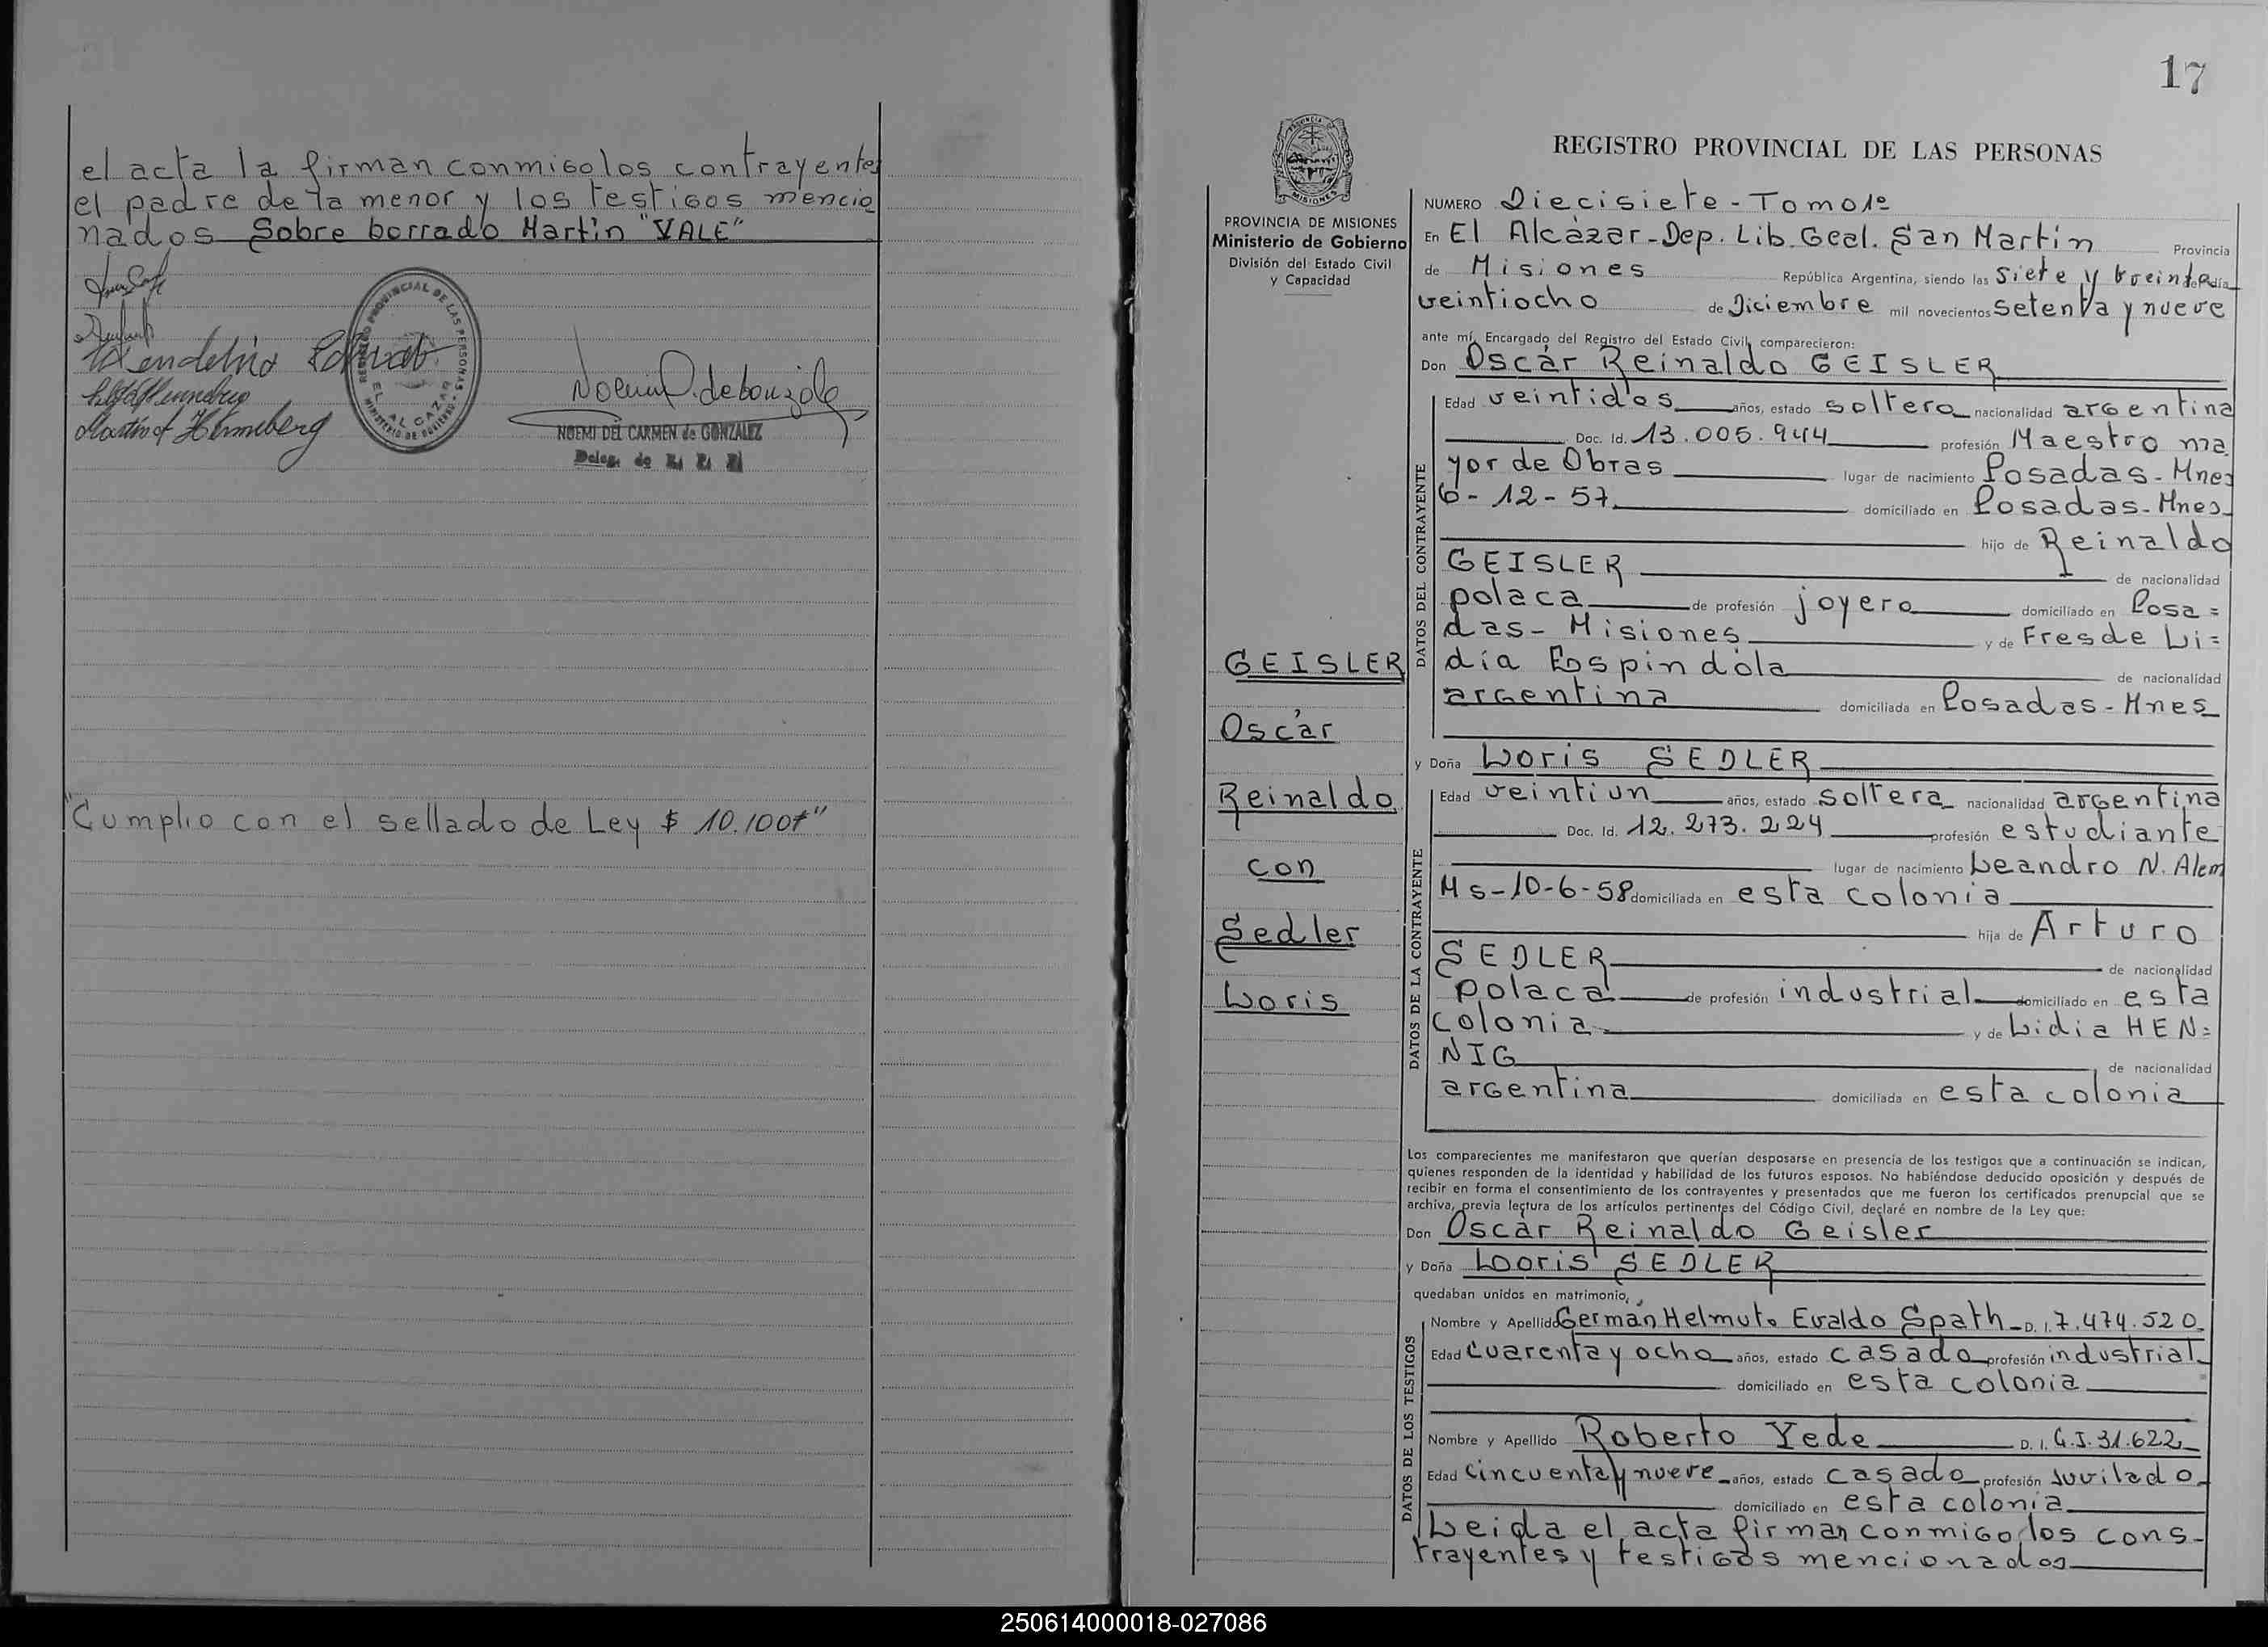 el acta la firman conmigo los contrayentes
el padre de la menor y los testigos mencio
nados Sobre borrado Martin "VALE"
REGISTRO PROVINCIAL DE LAS PERSONAS
EL ALCAZAR
MINISTERIO DE GOBIERNO
Martin Henneberg
NOEMI DEL CARMEN de GONZALEZ
Deleg. de
"Cumplio con el sellado de Ley $ 10.100"
17
REGISTRO PROVINCIAL DE LAS PERSONAS
PROVINCIA DE MISIONES
Ministerio de Gobierno
División del Estado Civil
y Capacidad
GEISLER
Oscár
Reinaldo
con
Sedler
Loris
NUMERO Diecisiete - Tomo 1º
En El Alcázar - Dep. Lib. Gral. San Martín Provincia
de Misiones República Argentina, siendo las siete y treinta del día
veintiocho de Diciembre mil novecientos setenta y nueve
ante mí, Encargado del Registro del Estado Civil, comparecieron:
Don Oscár Reinaldo GEISLER
DATOS DEL CONTRAYENTE
Edad veintidos años, estado soltero nacionalidad argentina
Doc. Id. 13.005.944 profesión Maestro ma
yor de Obras lugar de nacimiento Posadas - Mnes
6 - 12 - 57 domiciliado en Posadas - Mnes
hijo de Reinaldo
GEISLER de nacionalidad
polaca de profesión joyero domiciliado en Posa =
das - Misiones y de Fresde Li =
dia Espindola de nacionalidad
argentina domiciliada en Posadas - Mnes
y Doña Loris SEDLER
DATOS DE LA CONTRAYENTE
Edad veintiun años, estado soltera nacionalidad argentina
Doc. Id. 12.273.224 profesión estudiante
lugar de nacimiento Leandro N. Alem
Ms - 10 - 6 - 58 domiciliada en esta colonia
hija de Arturo
SEDLER de nacionalidad
polaca de profesión industrial domiciliado en esta
colonia y de Lidia HEN =
NIG de nacionalidad
argentina domiciliada en esta colonia
Los comparecientes me manifestaron que querían desposarse en presencia de los testigos que a continuación se indican,
quienes responden de la identidad y habilidad de los futuros esposos. No habiéndose deducido oposición y después de
recibir en forma el consentimiento de los contrayentes y presentados que me fueron los certificados prenupcial que se
archiva, previa lectura de los artículos pertinentes del Código Civil, declaré en nombre de la Ley que:
Don Oscár Reinaldo Geisler
y Doña Looris SEDLER
quedaban unidos en matrimonio,
DATOS DE LOS TESTIGOS
Nombre y Apellido Germán Helmuto Evaldo Spath D. I. 7.474.520
Edad cuarenta y ocho años, estado casado profesión industrial
domiciliado en esta colonia
Nombre y Apellido Roberto Yede D. I. C.I. 31.622
Edad cincuenta y nueve años, estado casado profesión juvilado
domiciliado en esta colonia
Leida el acta firman conmigo los cons-
trayentes y testigos mencionados
250614000018-027086